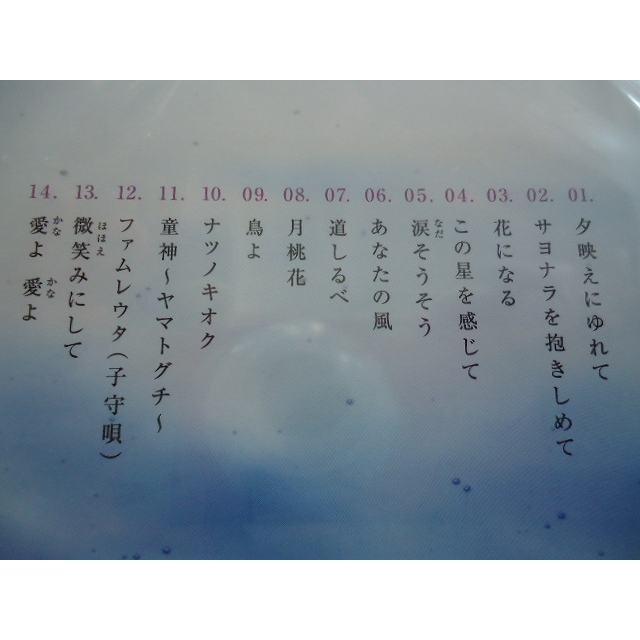 01. 夕映えにゆれて
02. サヨナラを抱きしめて
03. 花になる
04. この星を感じて
05. 涙そうそう
なだ
06. あなたの風
07. 道しるべ
08. 月桃花
09. 鳥よ
10. ナツノキオク
11. 童神〜ヤマトグチ〜
12. ファムレウタ(子守唄)
13. 微笑みにして
ほほえ
14. 愛よ 愛よ
かな かな